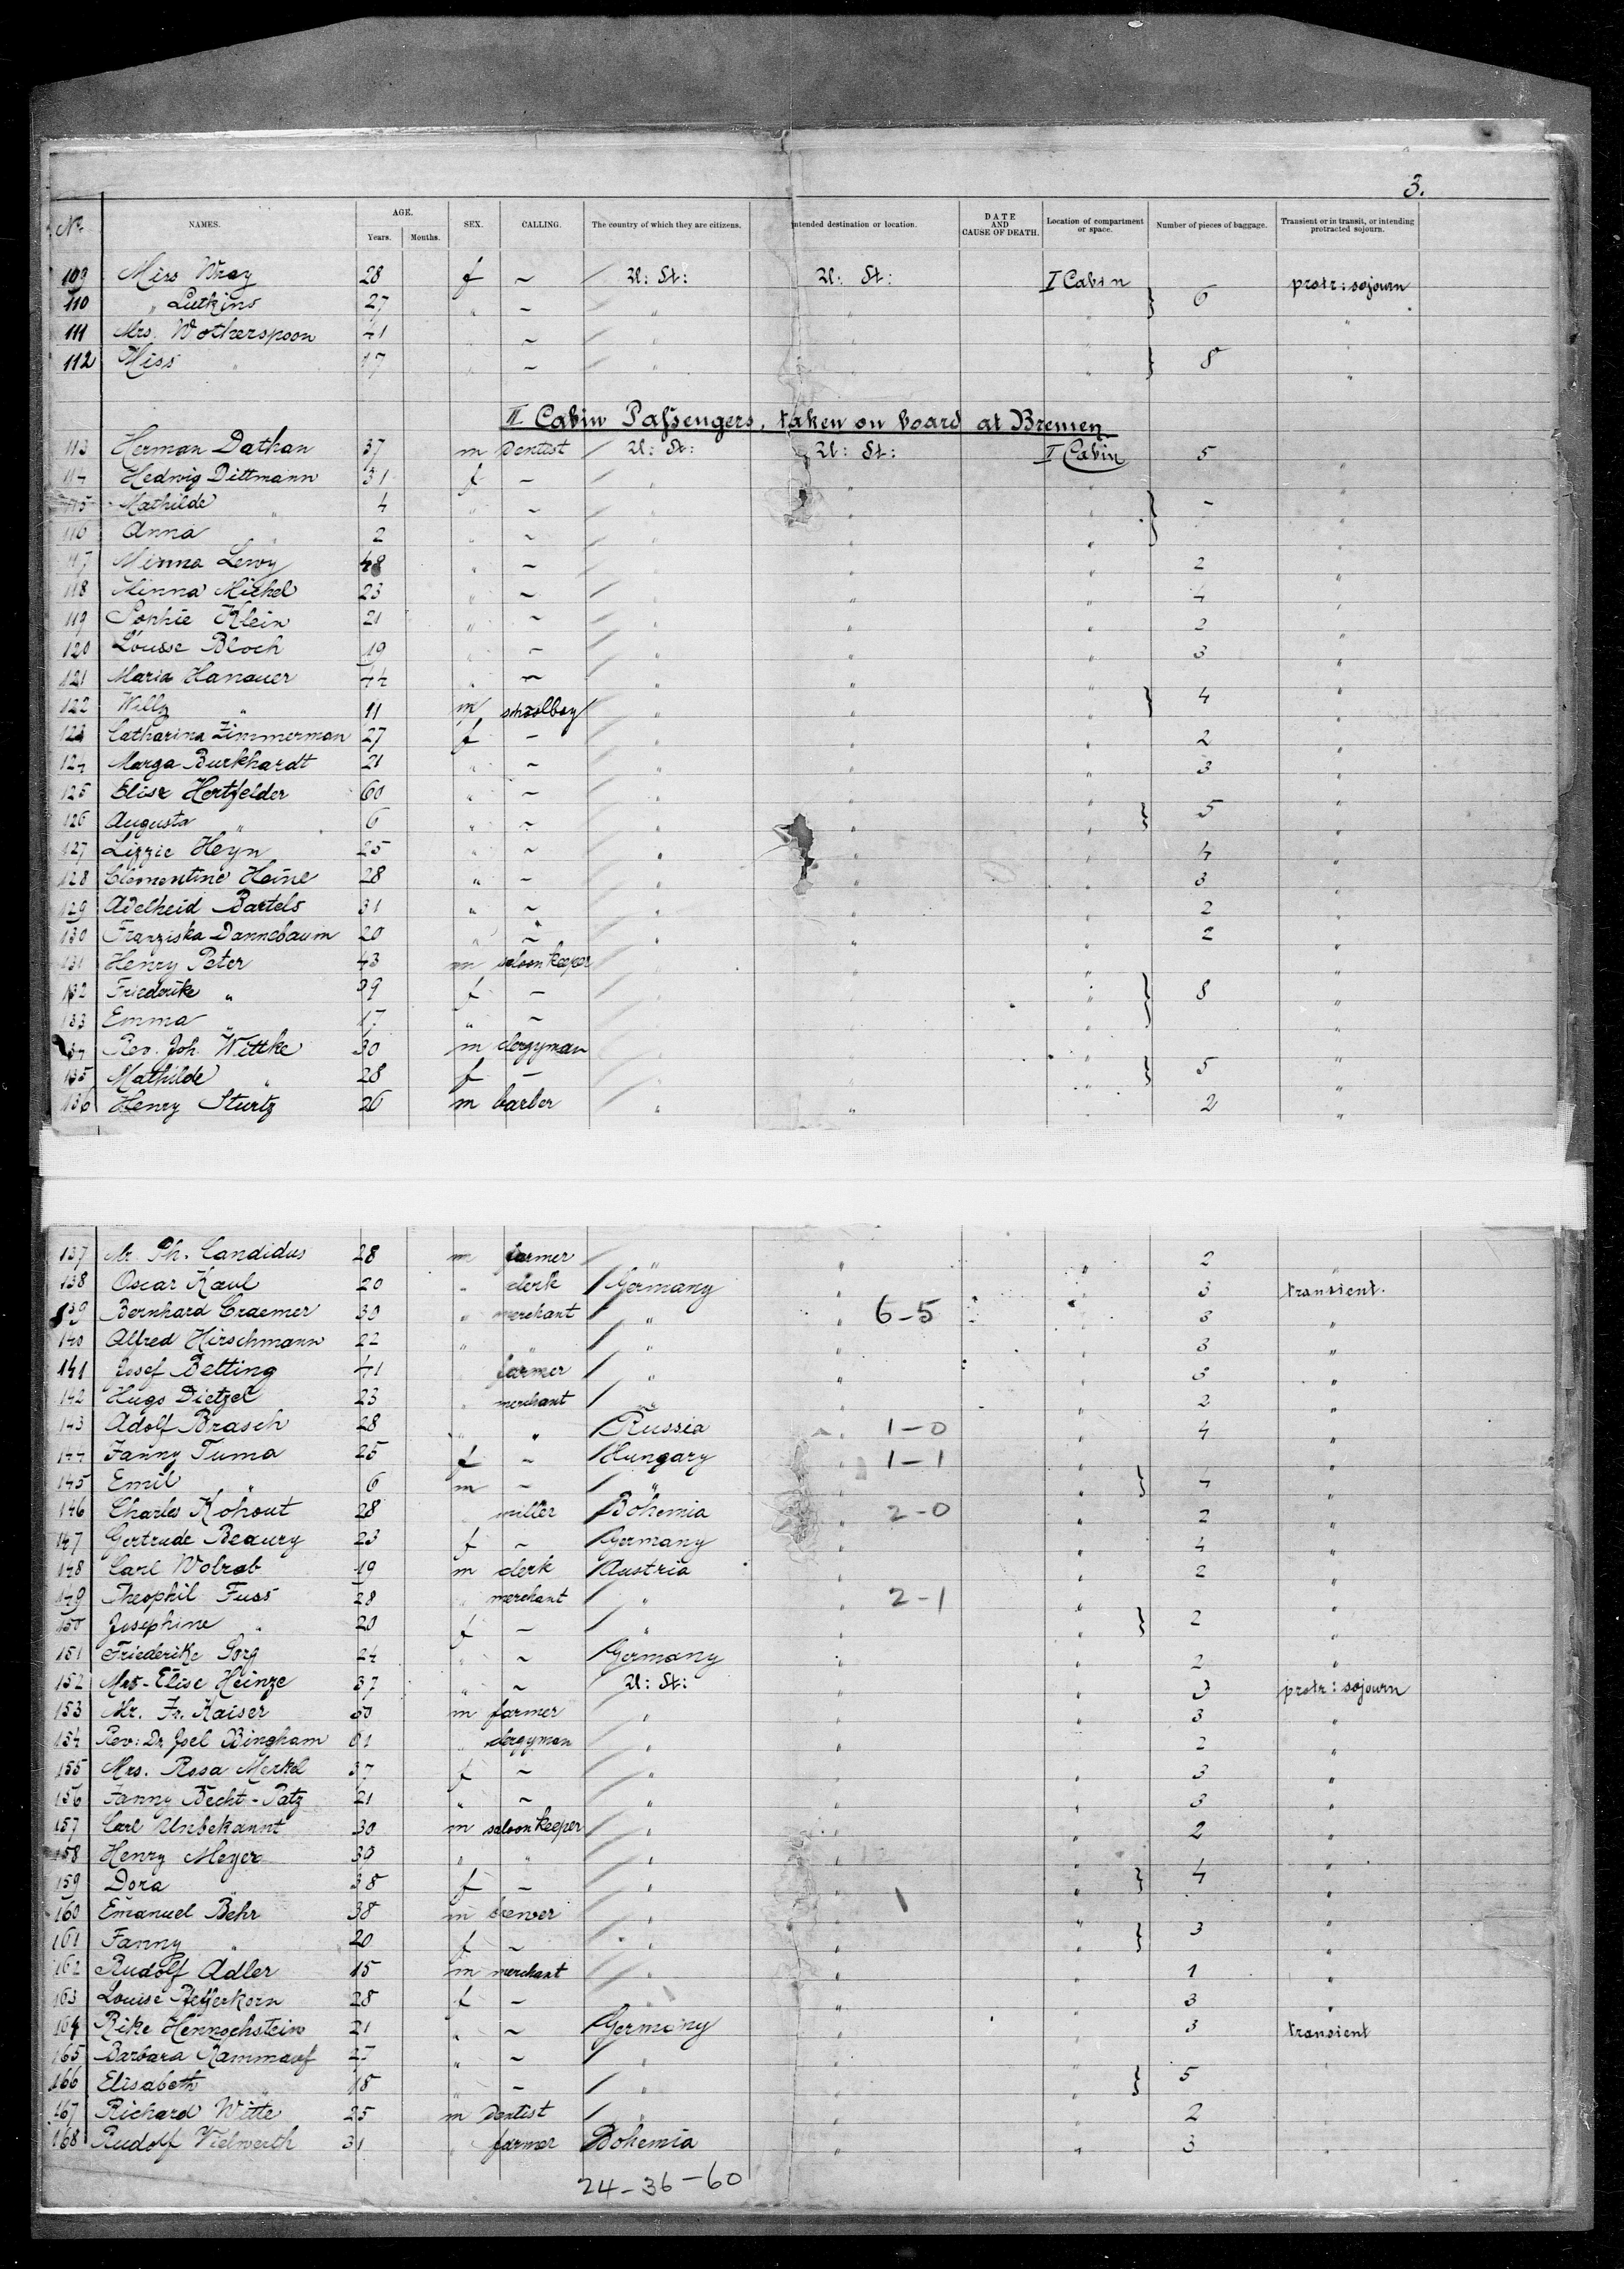 3.
No. NAMES. AGE. Years. Months. SEX. CALLING. The country of which they are citizens. Intended destination or location. DATE AND CAUSE OF DEATH. Location of compartment or space. Number of pieces of baggage. Transient or in transit, or intending protracted sojourn.
109 Miss Wray 28 f ~ U: St: U: St: I Cabin protr: sojourn
110 " Lutkins 27 " ~ " " " } 6 "
111 Mrs. Wotherspoon 41 " ~ " " " "
112 Miss " 17 " ~ " " " } 8 "
II Cabin Passengers, taken on board at Bremen
113 Herman Dathan 37 m Dentist U: St: U: St: II Cabin 5 "
114 Hedwig Dittmann 31 f ~ " " " "
115 Mathilde " 4 " ~ " " " } - "
116 Anna " 2 " ~ " " " "
117 Minna Levy 48 " ~ " " " 2 "
118 Minna Michel 23 " ~ " " " 4 "
119 Sophie Klein 21 " ~ " " " 2 "
120 Louise Bloch 19 " ~ " " " 3 "
121 Maria Hanauer 44 " ~ " " " "
122 Willy " 11 m schoolboy " " " } 4 "
123 Catharina Zimmerman 27 f - " " " 2 "
124 Marga Burkhardt 21 " ~ " " " 3 "
125 Elise Hertzfelder 60 " ~ " " " "
126 Augusta " 6 " ~ " " " } 5 "
127 Lizzie Heyn 25 " ~ " " " 4 "
128 Clementine Heine 28 " ~ " " " 3 "
129 Adelheid Bartels 31 " ~ " " " 2 "
130 Franziska Dannebaum 20 " ~ " " " 2 "
131 Henry Peter 43 m saloonkeeper " " " "
132 Friederike " 39 f - " " " } 8 "
133 Emma " 17 " ~ " " " "
134 Rev. Joh. Wittke 30 m clergyman " " " "
135 Mathilde " 28 f - " " " } 5 "
136 Henry Sturtz 26 m barber " " " 2 "
137 Mr. Ph. Candidus 28 m farmer " " " 2 "
138 Oscar Kaul 20 " clerk Germany " " 3 transient.
139 Bernhard Craemer 30 " merchant " " 6-5 " 3 "
140 Alfred Hirschmann 22 " " " " " 3 "
141 Josef Betting 41 farmer " " " 3 "
142 Hugo Dietzel 23 " merchant " " " 2 "
143 Adolf Brasch 28 " " Russia " 1-0 " 4 "
144 Fanny Tuma 25 f ~ Hungary " 1-1 " "
145 Emil " 6 m ~ " " " } 4 "
146 Charles Kohout 28 " miller Bohemia " 2-0 " 2 "
147 Gertrude Beaury 23 f ~ Germany " " 4 "
148 Carl Wolrab 19 m clerk Austria " " 2 "
149 Theophil Fuss 28 " merchant " " 2-1 " "
150 Josephine " 20 f ~ " " " } 2 "
151 Friederike Sorg 24 " ~ Germany " " 2 "
152 Mrs. Elise Heinze 37 " ~ U: St: " " 3 protr: sojourn
153 Mr. Fr. Kaiser 60 m farmer " " " 3 "
154 Rev: Dr. Joel Bingham 61 " clergyman " " " 2 "
155 Mrs. Rosa Merkel 37 f ~ " " " 3 "
156 Fanny Becht-Patz 21 " ~ " " " 3 "
157 Carl Unbekannt 30 m saloonkeeper " " " 2 "
158 Henry Meyer 39 " " " " " "
159 Dora 38 f - " " " } 4 "
160 Emanuel Behr 38 m brewer " " 1 " "
161 Fanny " 20 f ~ " " " } 3 "
162 Rudolf Adler 15 m merchant " " " 1 "
163 Louise Pfefferkorn 28 f - " " " 3 "
164 Rike Hennochstein 21 " ~ Germany " " 3 transient
165 Barbara Rammauf 27 " ~ " " "
166 Elisabeth " 18 " ~ " " " } 5 "
167 Richard Witte 25 m Dentist " " " 2 "
168 Rudolf Vielwerth 31 " farmer Bohemia " " 3 "
24-36-60